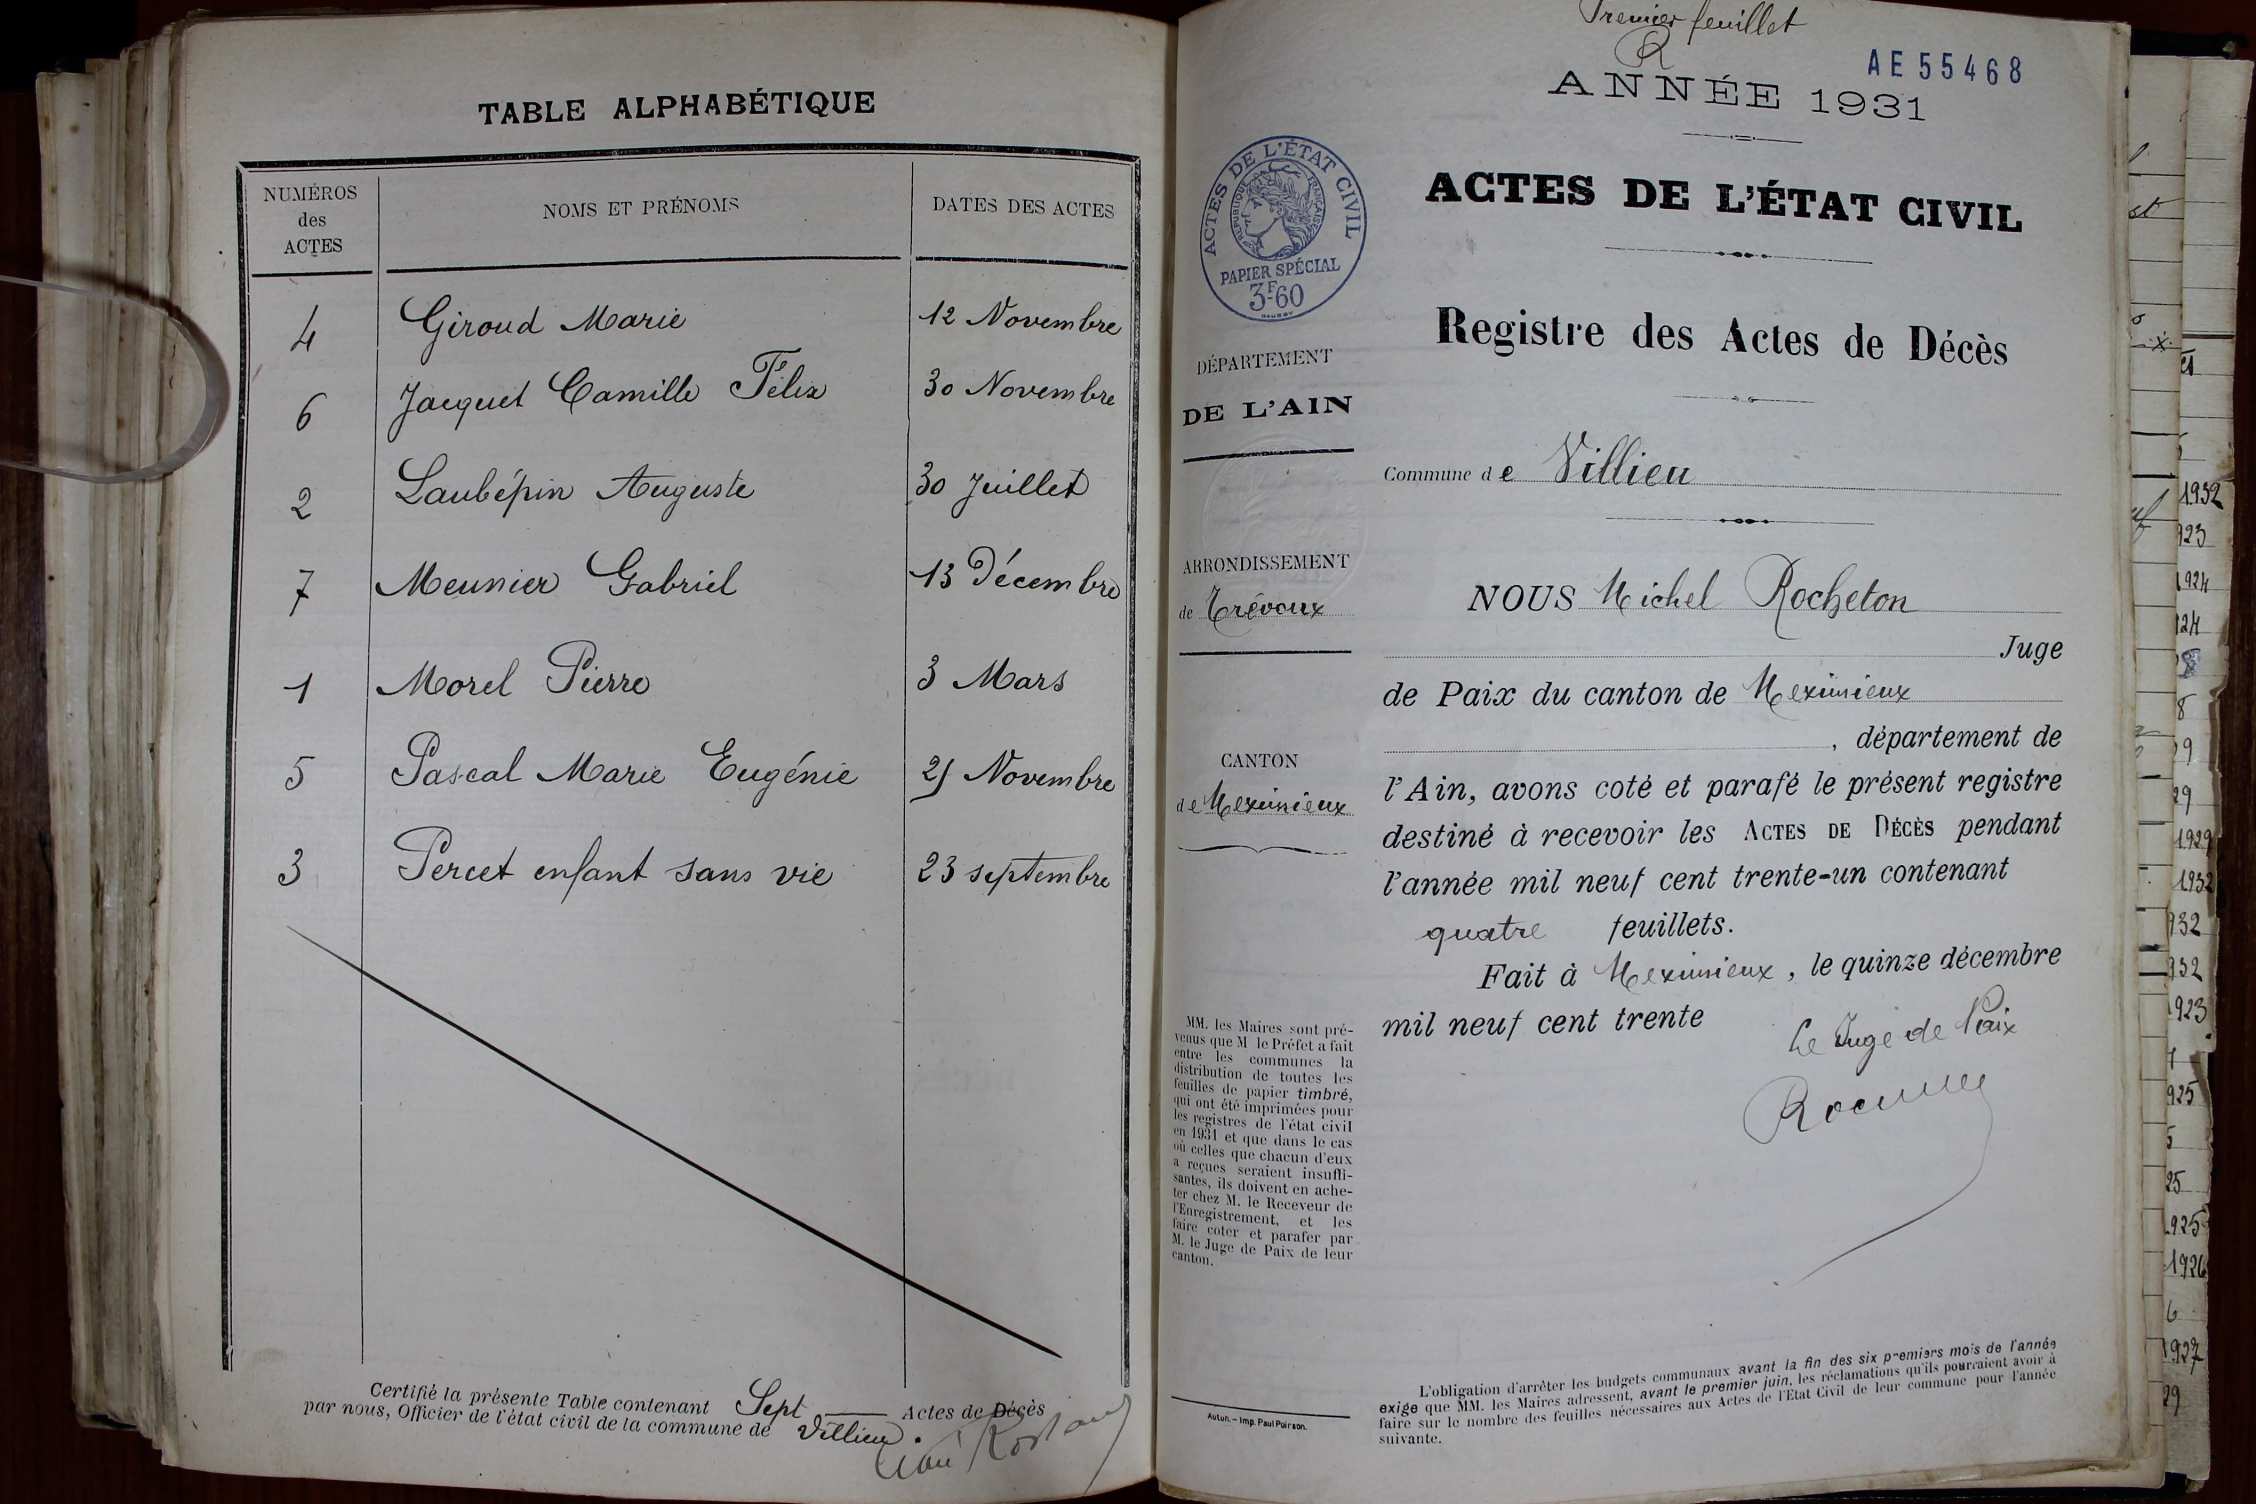 TABLE ALPHABÉTIQUE
NUMÉROS des ACTES
NOMS ET PRÉNOMS
DATES DES ACTES
4 Giroud Marie 12 Novembre
6 Jacquet Camille Félix 30 Novembre
2 Laubépin Auguste 30 Juillet
7 Meunier Gabriel 13 Décembre
1 Morel Pierre 3 Mars
5 Pascal Marie Eugénie Novembre
3 Percet enfant sans vie 23 septembre
Certifié la présente Table contenant Sept Actes de Décès
par nous, Officier de l'état civil de la commune de Villieu.
Premier feuillet
AE55468
ANNÉE 1931
ACTES DE L'ÉTAT CIVIL
RÉPUBLIQUE FRANÇAISE
PAPIER SPÉCIAL
3F60
ACTES DE L'ÉTAT CIVIL
Registre des Actes de Décès
DÉPARTEMENT
DE L'AIN
Commune de Villieu
ARRONDISSEMENT
de Trévoux
CANTON
de Meximieux
NOUS Michel Rocheton
Juge
de Paix du canton de Meximieux
, département de
l'Ain, avons coté et parafé le présent registre
destiné à recevoir les ACTES DE DÉCÈS pendant
l'année mil neuf cent trente-un contenant
quatre feuillets.
Fait à Meximieux, le quinze décembre
mil neuf cent trente
Le Juge de Paix
MM. les Maires sont pré-
venus que M le Préfet a fait
entre les communes la
distribution de toutes les
feuilles de papier timbré,
qui ont été imprimées pour
les registres de l'état civil
en 1931 et que dans le cas
où celles que chacun d'eux
a reçues seraient insuffi-
santes, ils doivent en ache-
ter chez M. le Receveur de
l'Enregistrement, et les
faire coter et parafer par
M. le Juge de Paix de leur
canton.
Autun. - Imp. Paul Poirson.
L'obligation d'arrêter les budgets communaux avant la fin des six premiers mois de l'année
exige que MM. les Maires adressent, avant le premier juin, les réclamations qu'ils pourraient avoir à
faire sur le nombre des feuilles nécessaires aux Actes de l'Etat Civil de leur commune pour l'année
suivante.
1932
923
1924
924
8
29
29
1929
1932
932
932
1923
925
25
1925
1926
6
1927
29